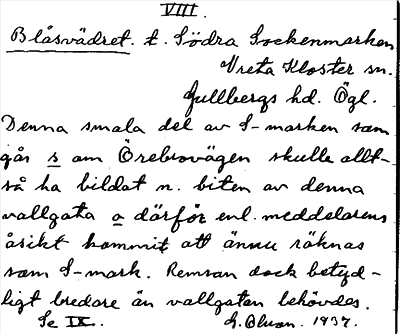 VIII.
Blåsvädret. t. Södra Sockenmarken
Vreta Kloster sn.
Gullbergs hd. Ögl.
Denna smala del av S-marken som
går s om Örebrovägen skulle allt-
så ha bildat n. biten av denna
vallgata o därför enl. meddelarens
åsikt kommit att ännu räknas
som S-mark. Remsan dock betyd-
ligt bredare än vallgatan behövdes.
Se IX. G. Olson. 1937.